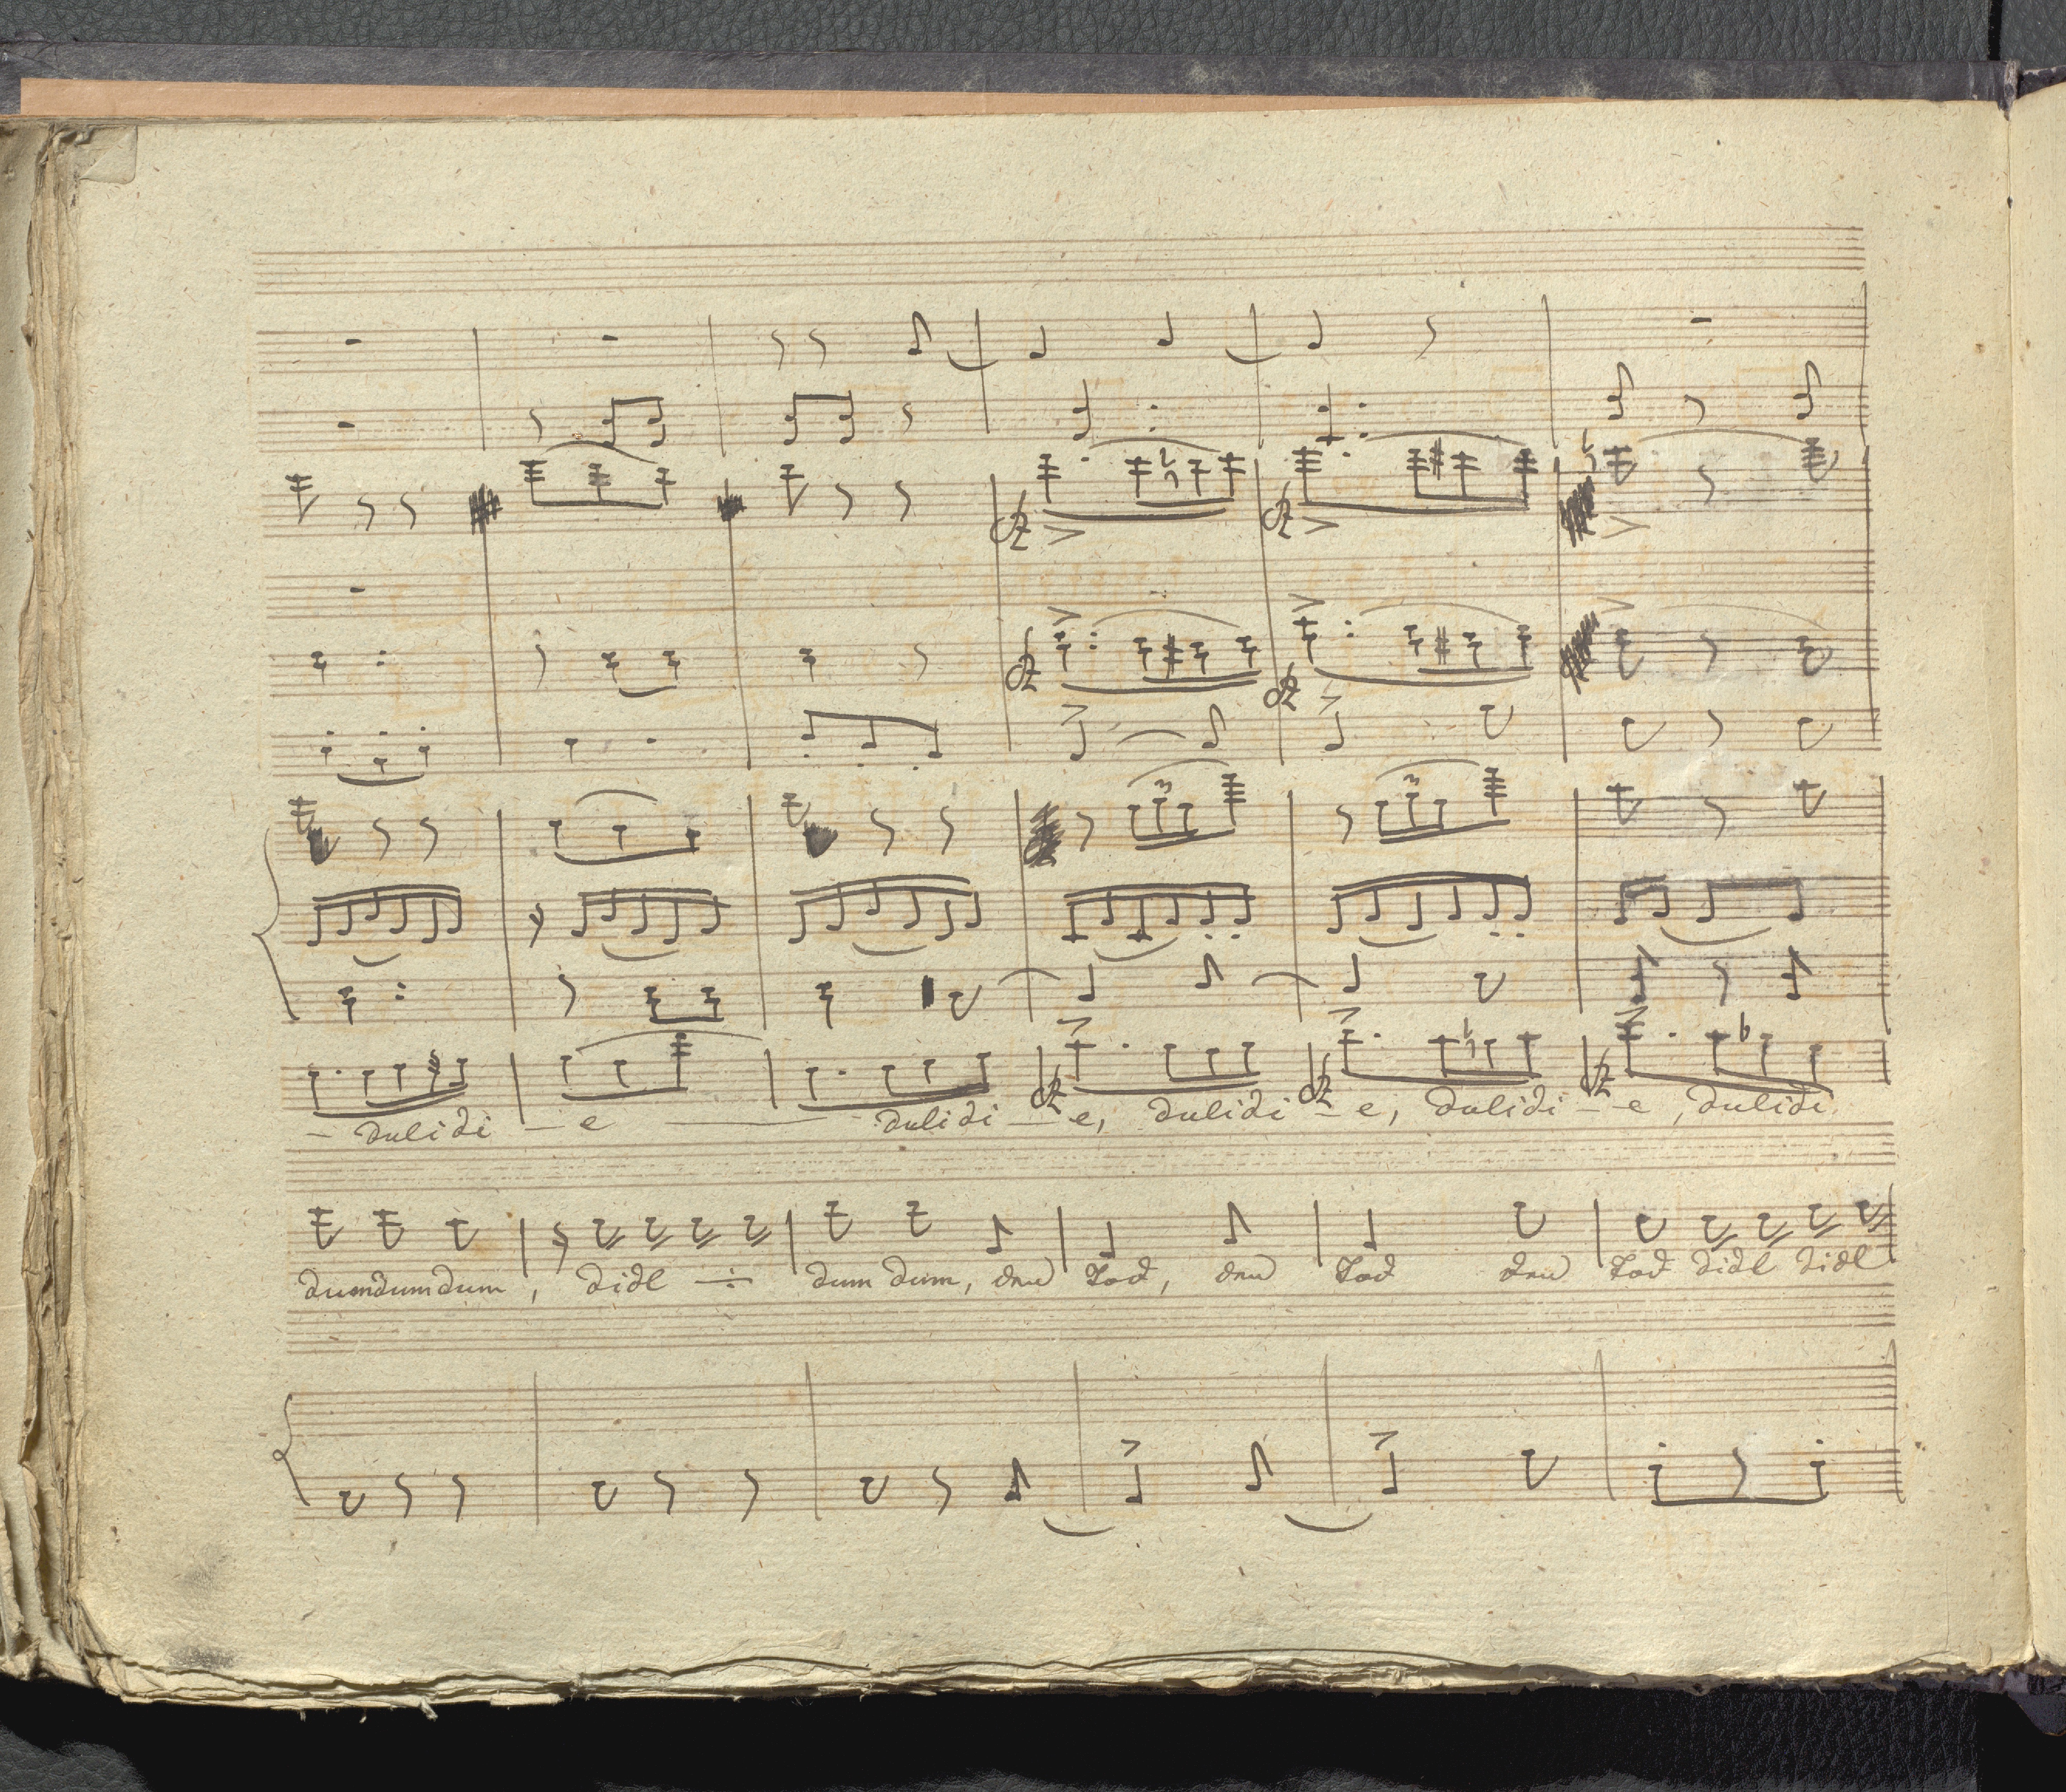 - dulidi - e - dulidi - e, dulidi - e, dulidi - e, dulidi
dumdumdum, didl ÷ dum dum, den Tod, den Tod den Tod didl didl